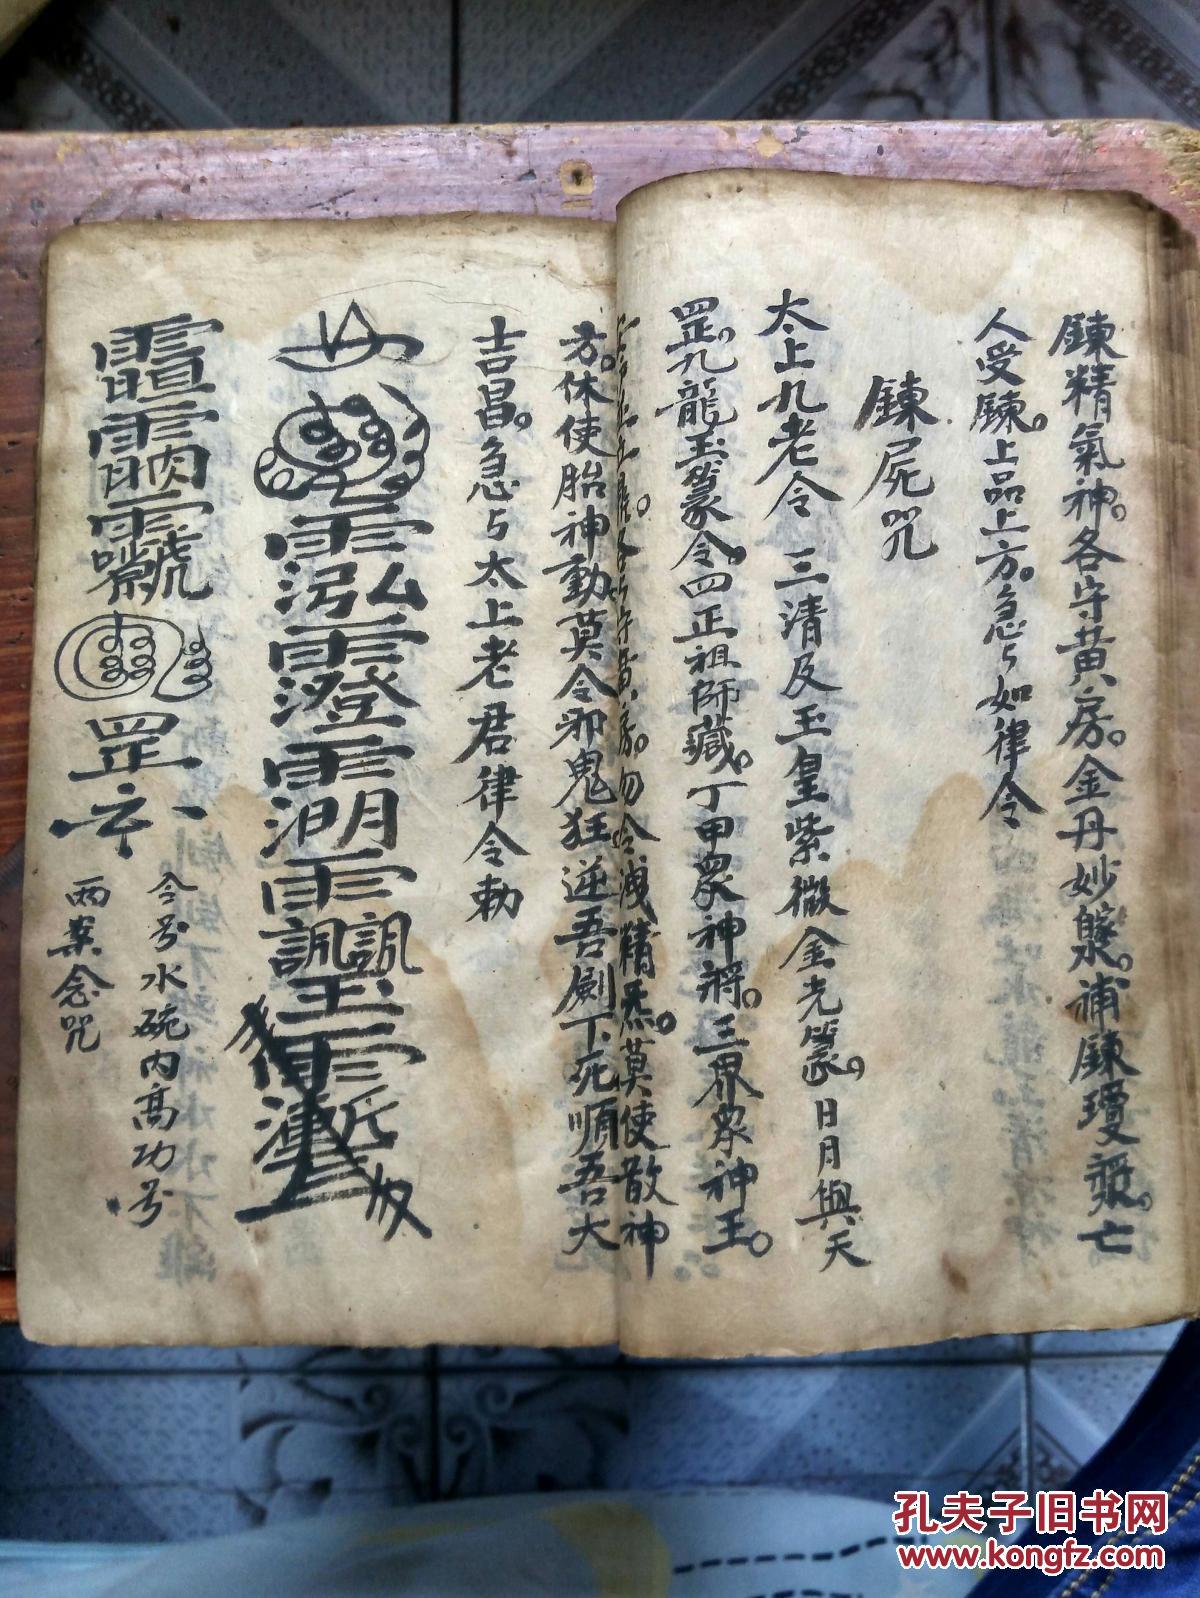 鍊精氣神各守黃房金丹妙補鍊瓊亡
人受鍊上品上方急〻如律令
鍊屍咒
太上九老令三清及玉皇紫微金光篆日月與天
罡九龍玉篆令四正祖師藏丁甲眾神將三界眾神王
各守黃房勿令洩精炁莫使散神
方休使胎神動莫令邪鬼狂逆吾劍下死順吾大
吉昌急〻太上老君律令勅
罡
令号水碗内高功号
两案念咒
孔夫子旧书网
www.kongfz.com